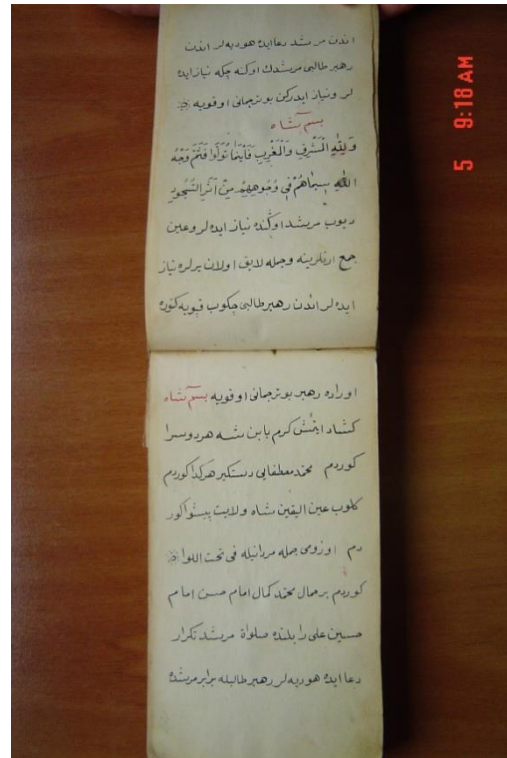 اندن مرشد دعا ایده هو دیه‌لر اندن
رهبر طالبی مرشدك اوكنه چكه نیاز ایده
لر و نیاز ایدركن بو ترجمانی اوقویه
بسم شاه
وَلِلّٰهِ الْمَشْرِقِ وَالْمَغْرِبِ فَاَیْنَمَا تُوَلُّوا فَثَمَّ وَجْهُ
اللّٰهِ سِیمَاهُمْ فِی وُجُوهِهِمْ مِنْ اَثَرِ السُّجُودِ
دیوب مرشد اوڭنده نیاز ایده‌لر وعین
جمع ارنلرینه وجمله لایق اولان یرلره نیاز
ایده لر اندن رهبر طالبی چكوب قپویه كتوره
اوراده رهبر بو ترجمانی اوقویه بسم شاه
كشاد ایتمش كرم بابن شه هر دوسرا
كوردم محمد مصطفایی دستكیر هر كدا كوردم
كلوب عین الیقین شاه ولایت پیشوا كور
دم اوزومی جمله مردانیله فی تحت اللوا
كوردم بر جمال محمد كمال امام حسن امام
حسین علی را بلنده صلواة مرشد تكرار
دعا ایده هو دیه‌لر رهبر طالبله برابر مرشده
5 9:18 AM